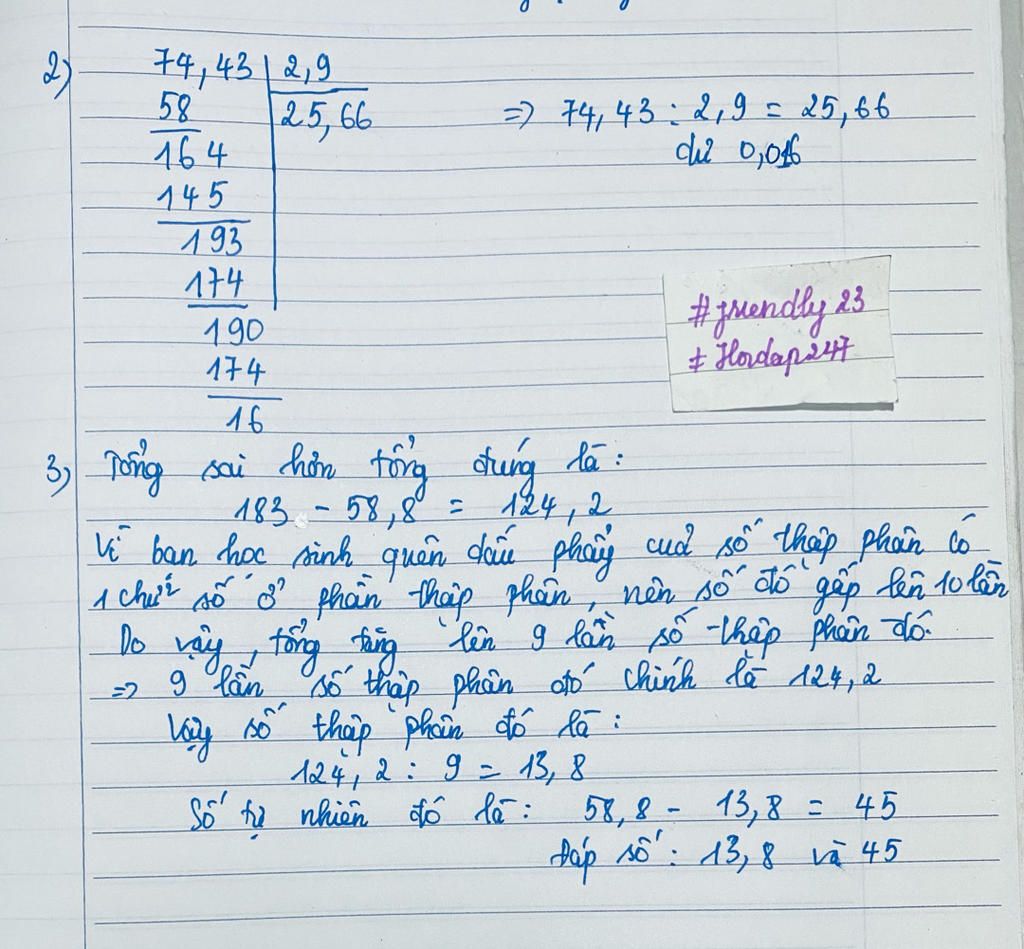 2)
74,43 2,9
58 25,66 => 74,43 : 2,9 = 25,66
164 dư 0,016
145
193
174
190
174
16
#friendly23
#Hoidap247
3) Tổng sai hơn tổng đúng là:
183 - 58,8 = 124,2
Vì bạn học sinh quên dấu phẩy của số thập phân có
1 chữ số ở phần thập phân, nên số đó gấp lên 10 lần
Do vậy, tổng tăng lên 9 lần số thập phân đó.
=> 9 lần số thập phân đó chính là 124,2
Vậy số thập phân đó là:
124,2 : 9 = 13,8
Số tự nhiên đó là: 58,8 - 13,8 = 45
Đáp số: 13,8 và 45